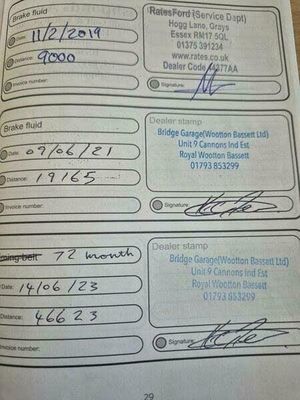 Brake fluid
Date: 11/2/2019
Distance: 9000
Invoice number:
RatesFord (Service Dept)
Hogg Lane, Grays
Essex RM17 5QL
01375 391234
www.rates.co.uk
Dealer Code 44377AA
Signature:
Brake fluid
Date: 09/06/21
Distance: 19165
Invoice number:
Dealer stamp
Bridge Garage(Wootton Bassett Ltd)
Unit 9 Cannons Ind Est
Royal Wootton Bassett
01793 853299
Signature:
ming belt 72 month
Date: 14/06/23
Distance: 46623
Invoice number:
Dealer stamp
Bridge Garage(Wootton Bassett Ltd)
Unit 9 Cannons Ind Est
Royal Wootton Bassett
01793 853299
Signature:
29